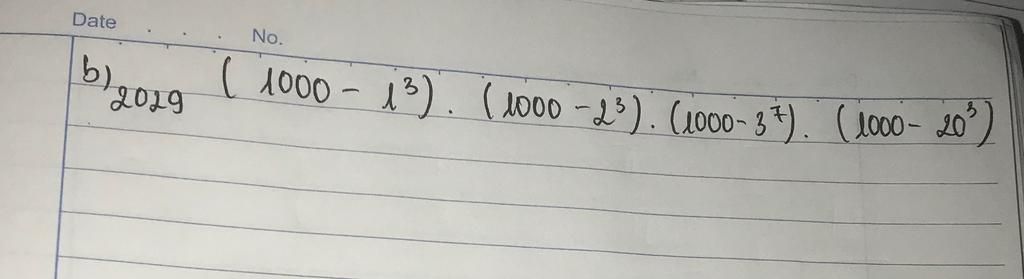 Date . . . No.
b) 2029 ( 1000 - 1³) . (1000 - 2³) . (1000 - 3⁷) . (1000 - 20³)